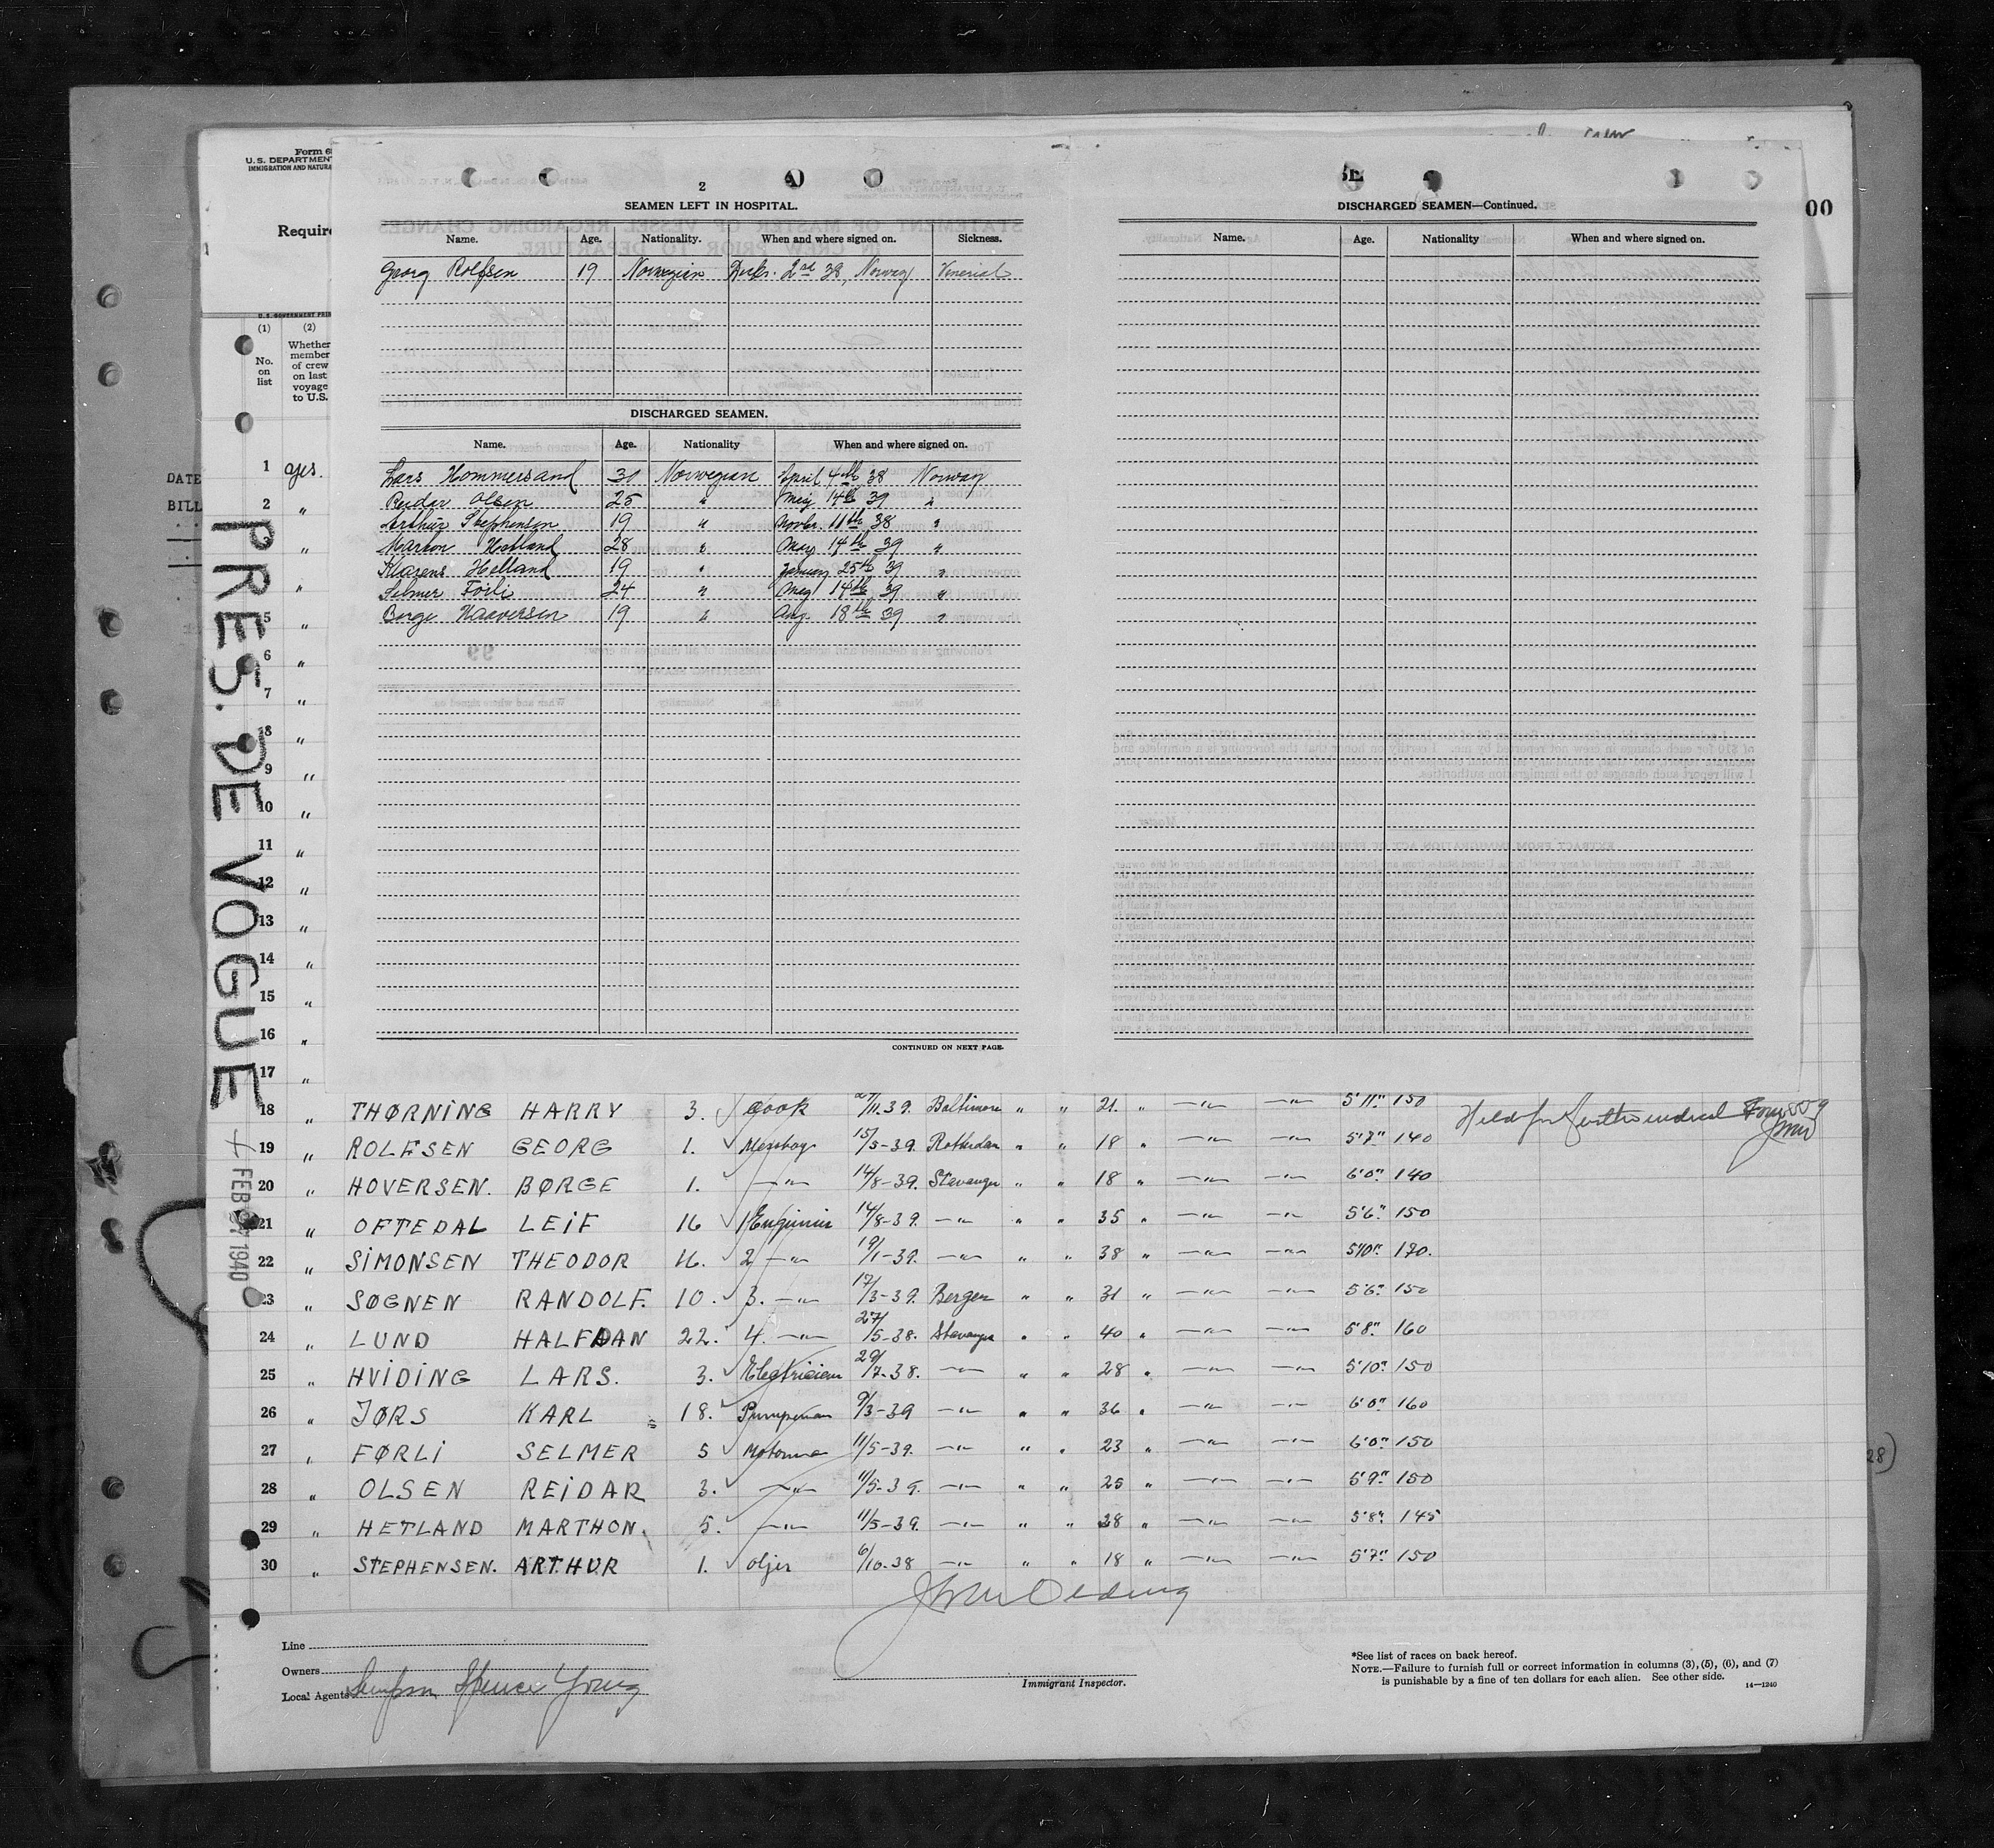 Form 6
U. S. DEPARTMENT
IMMIGRATION AND NATURA
Require
00
U. S. GOVERNMENT PRIN
(1) (2)
No. on list
Whether member of crew on last voyage to U.S.
DATE
BILL
PRES. DE VOGUE
FEB 1940
2
SEAMEN LEFT IN HOSPITAL.
Name. Age. Nationality. When and where signed on. Sickness.
Georg Rolfsen 19 Norwegian Decbr. 2nd 38, Norway Venerial
DISCHARGED SEAMEN.
Name. Age. Nationality When and where signed on.
Lars Hommersand 30 Norwegian April 4th 38 Norway
Reidar Olsen 25 " May 14th 39 "
Arthur Stephensen 19 " Novbr. 11th 38 "
Marton Hetland 28 " May 14th 39 "
Klarens Helland 19 " January 25th 39 "
Selmer Förli 24 " May 14th 39 "
Borge Haaversen 19 " Aug. 18th 39 "
CONTINUED ON NEXT PAGE.
DISCHARGED SEAMEN—Continued.
Name. Age. Nationality When and where signed on.
1 yes.
2 "
"
"
5 "
6 "
7 "
8 "
9 "
10 "
11 "
12 "
13 "
14 "
15 "
16 "
17 "
18 " THØRNING HARRY 3. Cook 11.39. Baltimore " " 21. " —"— —"— 5'11" 150
Held for
19 " ROLFSEN GEORG 1. Messboy 15/5-39. Rotterdam " " 18 " —"— —"— 5'7" 140
20 " HOVERSEN. BØRGE 1. —"— 14/8-39. Stavanger " " 18 " —"— —"— 6'0" 140
21 " OFTEDAL LEIF 16 1 Engineer 14/8-39. —"— " " 35 " —"— —"— 5'6" 150
22 " SIMONSEN THEODOR 16. 2 —"— 19/1-39. —"— " " 38 " —"— —"— 5'10" 170.
23 " SØGNEN RANDOLF. 10. 3. —"— 17/3-39. Bergen " " 31 " —"— —"— 5'6" 150
24 " LUND HALFDAN 22. 4. —"— 27/5-38. Stavanger " " 40 " —"— —"— 5'8" 160
25 " HVIDING LARS. 3. Electrician 29/7-38. —"— " " 28 " —"— —"— 5'10" 150
26 " JØRS KARL 18. Pumpeman 9/3-39 —"— " " 36 " —"— —"— 6'0" 160
27 " FØRLI SELMER 5 Motorman 11/5-39. —"— " " 23 " —"— —"— 6'0" 150
28 " OLSEN REIDAR 3. —"— 11/5-39. —"— " " 25 " —"— —"— 5'9" 150
29 " HETLAND MARTHON. 5. —"— 11/5-39. —"— " " 28 " —"— —"— 5'8" 145
30 " STEPHENSEN. ARTHUR 1. Oljer 6/10-38 —"— " " 18 " —"— —"— 5'7" 150
28)
Line
Owners
Local Agents Simpson Spence Young
Immigrant Inspector.
*See list of races on back hereof.
NOTE.—Failure to furnish full or correct information in columns (3), (5), (6), and (7)
is punishable by a fine of ten dollars for each alien. See other side.
14—1240